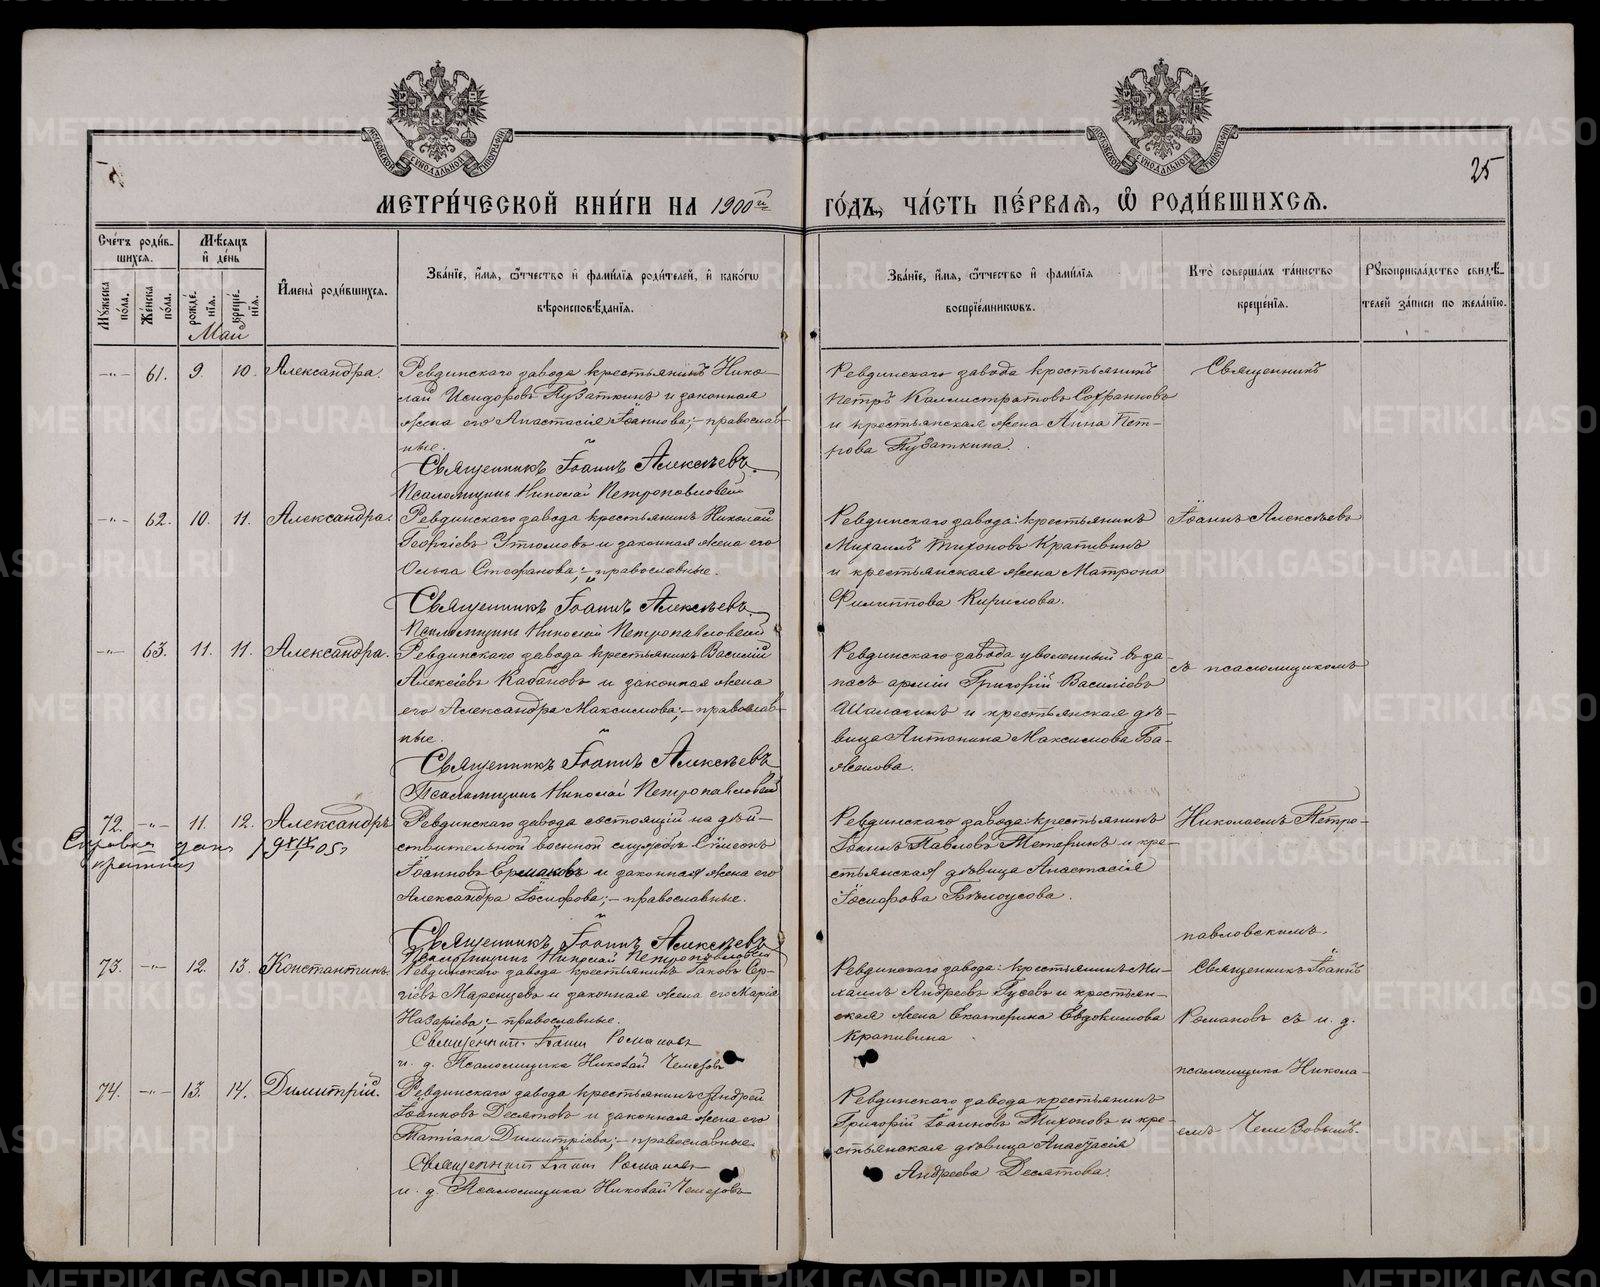 МЕТРИ́ЧЕСКОЙ КНИ́ГИ НА 1900й
ГО́ДЪ, ЧА́СТЬ ПЕ́РВАЯ, Ѡ҆ РОДИ́ВШИХСЯ.
25
Сче́тъ роди́в-
шихся.
Мѣ́сяцъ
и҆ де́нь
Мꙋжеска по́ла.
Же́нска по́ла.
рожде́нїѧ.
креще́нїѧ.
И҆мена̀ роди́вшихся.
Зва́нїе, и҆́мя, ѻ҆́тчество и҆ фами́лїя роди́телей, и҆ како́гѡ
вѣроисповѣ́данїя.
Зва́нїе, и҆́мя, ѻ҆́тчество и҆ фами́лїя
воспрїе́мникѡвъ.
Кто̀ соверша́лъ та́инство
креще́нїя.
Рꙋкоприкла́дство свидѣ́-
телей за́писи по жела́нїю.
Май
-"- 61. 9. 10. Александра.
Ревдинскаго завода крестьянинъ Нико-
лай Исидоровъ Пузаткинъ и законная
жена его Анастасія Іоаннова; – православ-
ные.
Священникъ Іоаннъ Алексѣевъ.
Псаломщикъ Николай Петропавловскій
Ревдинскаго завода крестьянинъ
Петръ Каллистратовъ Софронновъ
и крестьянская жена Анна Пет-
рова Пузаткина.
Священникъ
-"- 62. 10. 11. Александра.
Ревдинскаго завода крестьянинъ Николай
Георгіевъ и законная жена его
Ольга Стефанова; – православные.
Священникъ Іоаннъ Алексѣевъ.
Псаломщикъ Николай Петропавловскій
Ревдинскаго завода: крестьянинъ
Михаилъ Тихоновъ Крапивинъ
и крестьянская жена Матрона
Филиппова Кирилова.
Іоаннъ Алексѣевъ
-"- 63. 11. 11. Александра.
Ревдинскаго завода крестьянинъ Василій
Алексіевъ Кабановъ и законная жена
его Александра Максимова; – православ-
ные.
Священникъ Іоаннъ Алексѣевъ
Псаломщикъ Николай Петропавловскій
Ревдинскаго завода уволенный въ за-
пасъ арміи Григорій Василіовъ
Шалагинъ и крестьянская дѣ-
вица Антонина Максимова Ба-
женова.
съ псаломщикомъ
72. -"- 11. 12. Александръ
Справка дана
Ревдинскаго завода состоящій на дѣй-
ствительной военной службѣ Сѵмеонъ
Іоанновъ Ермаковъ и законная жена его
Александра Іосифова; – православные.
Священникъ Іоаннъ Алексѣевъ
Псаломщикъ Николай Петропавловскій
Ревдинскаго завода: крестьянинъ
Іоаннъ Павловъ Тетеринъ и кре-
стьянская дѣвица Анастасія
Іосифова Бѣлоусова.
Николаемъ Петро-
павловскимъ.
73. -"- 12. 13. Константинъ.
Ревдинскаго завода крестьянинъ Іаковъ Сер-
гіевъ Маренцевъ и законная жена его Марія
Назаріева; – православные.
Священникъ Іоаннъ Романовъ
и. д. Псаломщика Николай Чемезовъ
Ревдинскаго завода: крестьянинъ Ми-
хаилъ Андреевъ Гусевъ и крестьян-
ская жена Екатерина Евдокимова
Крапивина
Священникъ Іоаннъ
Романовъ съ и. д.
псаломщика Никола-
74. -"- 13. 14. Димитрій.
Ревдинскаго завода крестьянинъ Андрей
Іоанновъ Десятовъ и законная жена его
Татіана Димитріева; – православные
Священникъ Іоаннъ Романовъ
и. д. Псаломщика Николай Чемезовъ
Ревдинскаго завода крестьянинъ
Григорій Іоанновъ Тихоновъ и кре-
стьянская дѣвица Анастасія
Андреева Десятова.
емъ Чемезовымъ.